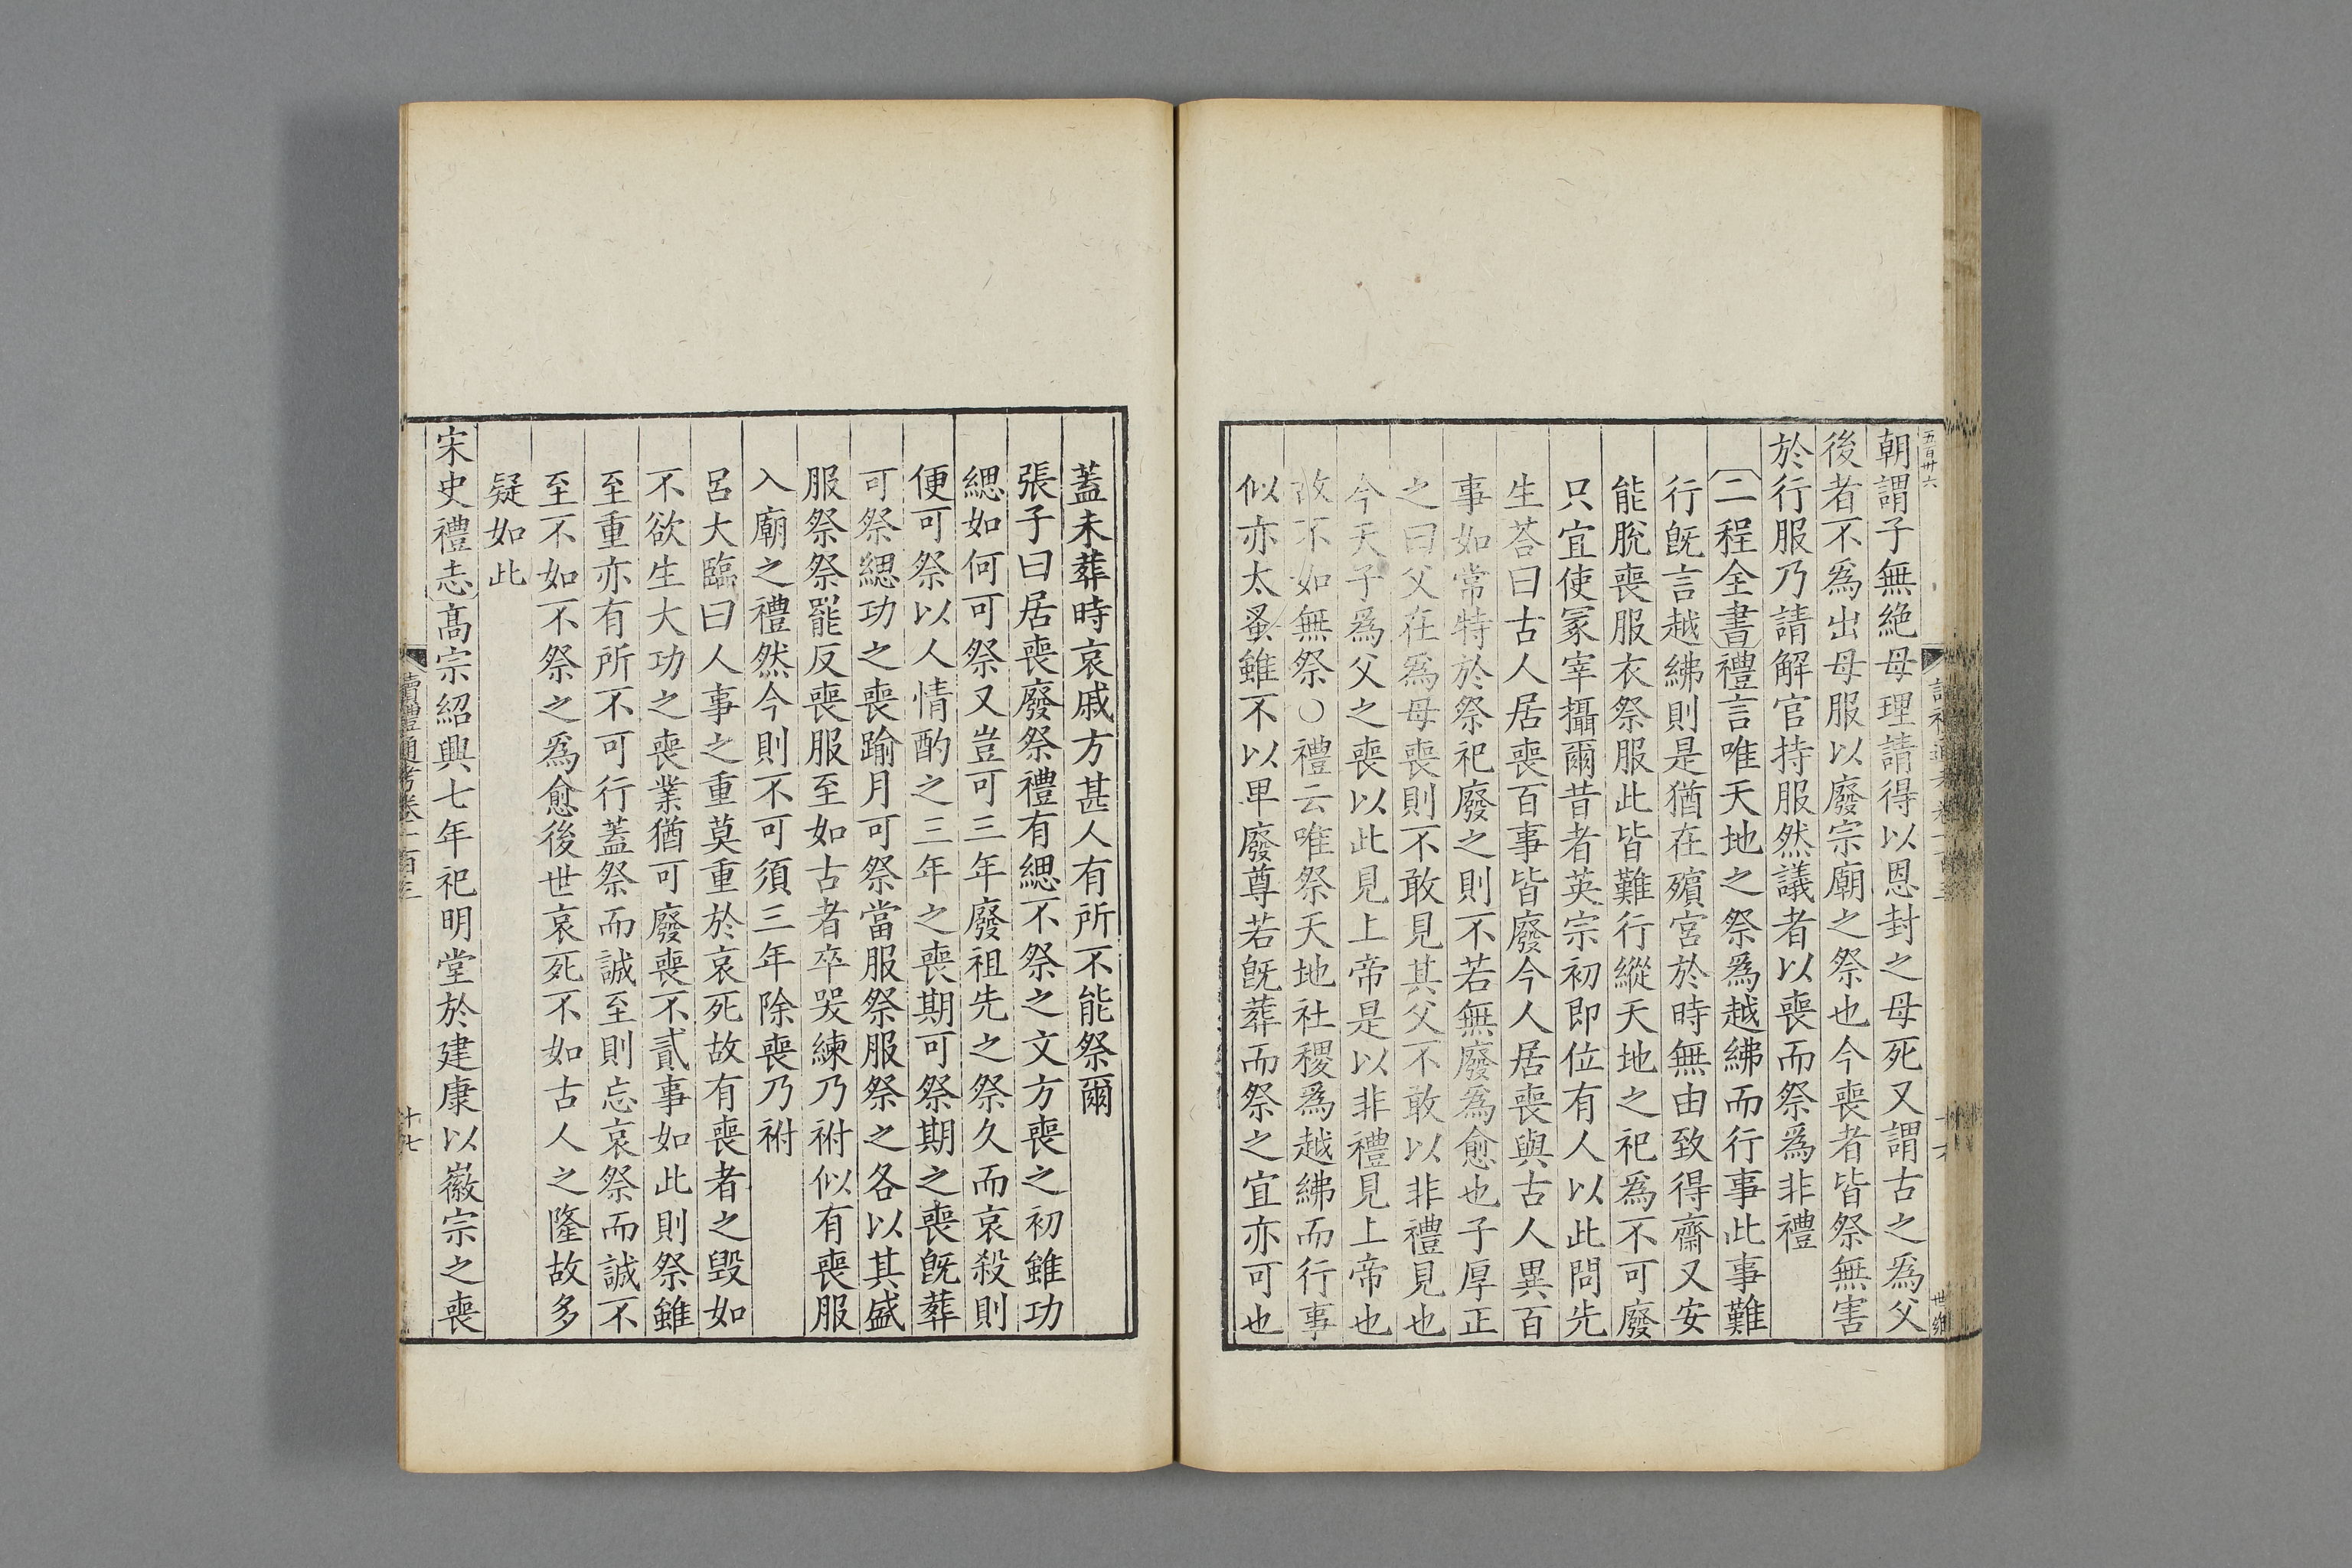 五百卅六
朝謂子無絶母理請得以恩封之母死又謂古之爲父
後者不爲出母服以廢宗廟之祭也今喪者皆祭無害
於行服乃請解官持服然議者以喪而祭爲非禮
二程全書禮言唯天地之祭爲越紼而行事此事難
行旣言越紼則是猶在殯宮於時無由致得齋又安
能脫喪服衣祭服此皆難行縱天地之祀爲不可廢
只宜使冢宰攝爾昔者英宗初即位有人以此問先
生荅曰古人居喪百事皆廢今人居喪與古人異百
事如常特於祭祀廢之則不若無廢爲愈也子厚正
之曰父在爲母喪則不敢見其父不敢以非禮見也
今天子爲父之喪以此見上帝是以非禮見上帝也
故不如無祭○禮云唯祭天地社稷爲越紼而行事
似亦太蚤雖不以卑廢尊若旣葬而祭之宜亦可也
蓋未葬時哀戚方甚人有所不能祭爾
張子曰居喪廢祭禮有緦不祭之文方喪之初雖功
緦如何可祭又豈可三年廢祖先之祭久而哀殺則
便可祭以人情酌之三年之喪期可祭期之喪旣葬
可祭緦功之喪踰月可祭當服祭服祭之各以其盛
服祭祭罷反喪服至如古者卒哭練乃祔似有喪服
入廟之禮然今則不可須三年除喪乃祔
呂大臨曰人事之重莫重於哀死故有喪者之毀如
不欲生大功之喪業猶可廢喪不貳事如此則祭雖
至重亦有所不可行蓋祭而誠至則忘哀祭而誠不
至不如不祭之爲愈後世哀死不如古人之隆故多
疑如此
宋史禮志高宗紹興七年祀明堂於建康以徽宗之喪
讀禮通考卷一百三
十七